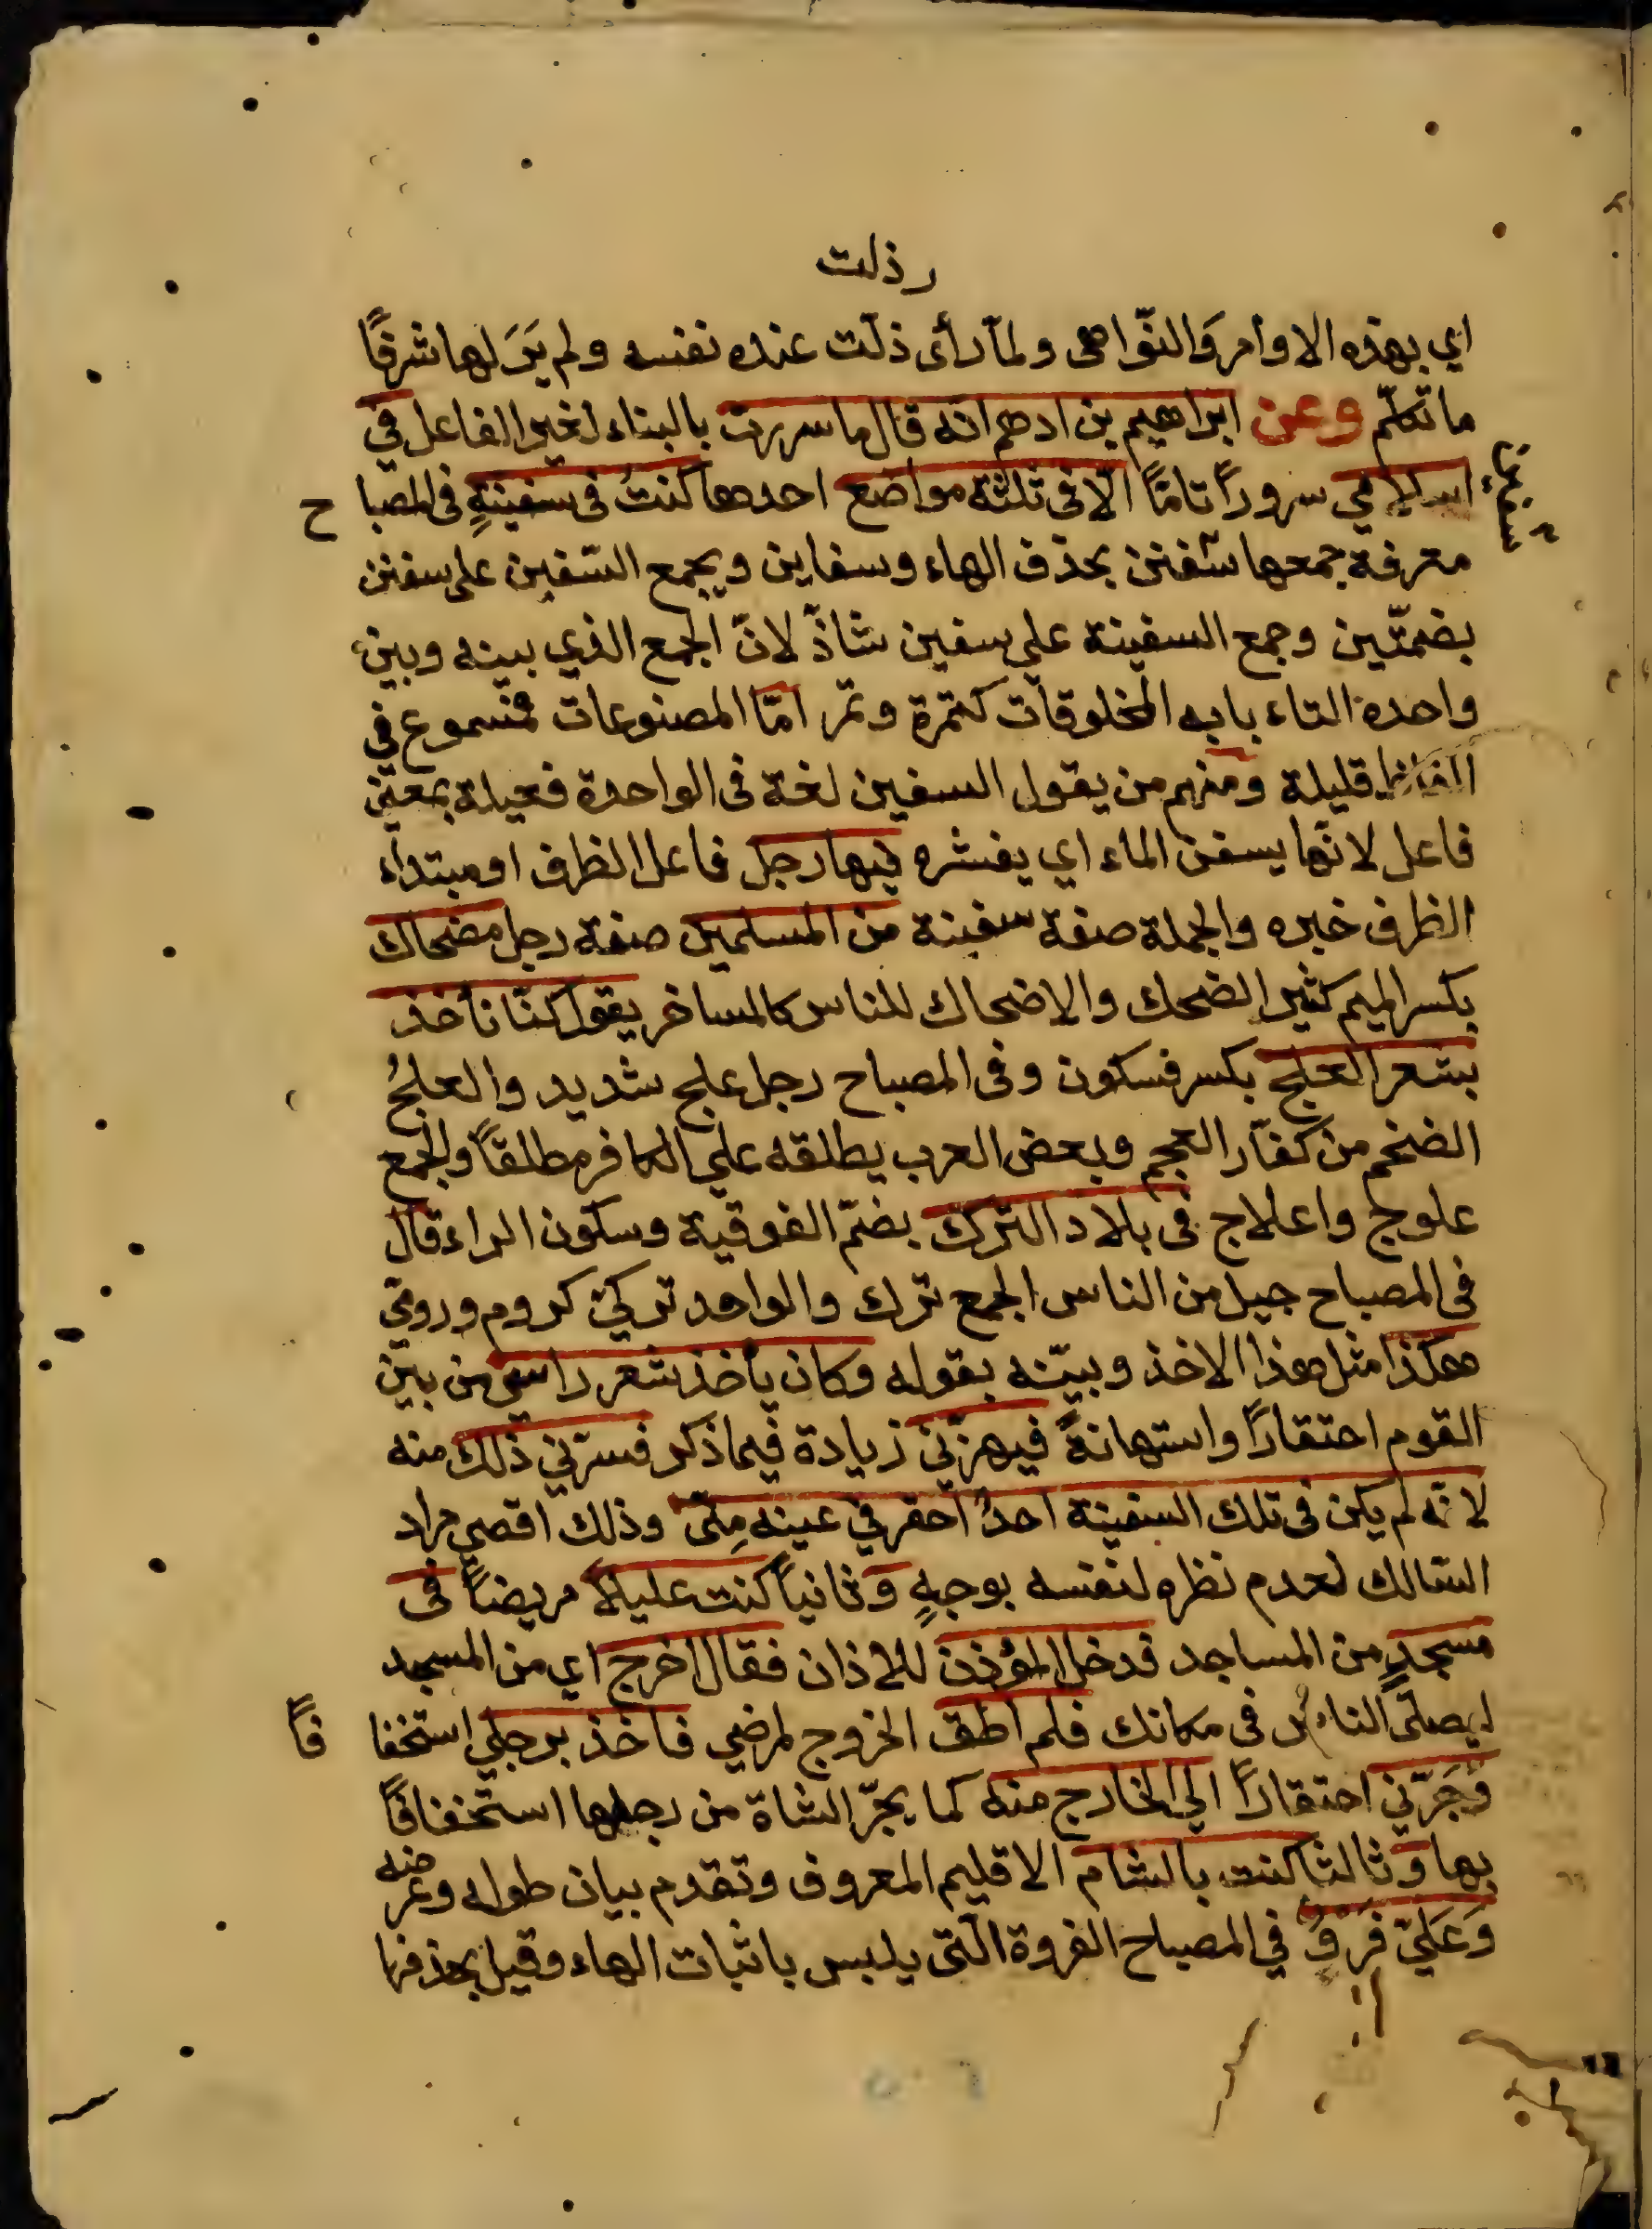 رذلت
اي بهذه الاوامر والنّواهى ولمّا رأى ذلّت عنده نفسه ولم يَرَ لها شرفًا
ما تكلّم وعن ابراهيم بن ادهم انه قال ما سررت بالبناء لغير الفاعل في
اسلامي سرورًا تامًّا الّا فى ثلثة مواضع احدها كنتُ فى سفينةٍ فى المصباح
معرفة جمعها سفن بحذف الهاء وسفاين ويجمع السّفين على سفن
بضمّتين وجمع السفينة على سفين شاذّ لانّ الجمع الذي بينه وبين
واحده التاء بابه المخلوقات كتمرة وتمر امّا المصنوعات فمسموع في
الفاظ قليلة ومنهم من يقول السفين لغة فى الواحدة فعيلة بمعنى
فاعل لانّها يسفن الماء اي يقشره فيها رجل فاعل الظرف او مبتداء
الظرف خبره والجملة صفة سفينة من المسلمين صفة رجل مضحاك
بكسر الميم كثير الضحك والاضحاك للناس كالمساخر يقول كنّا نأخذ
بشعر العلج بكسر فسكون وفى المصباح رجل علج شديد والعلجُ
الضخم من كفّار العجم وبعض العرب يطلقه على الكافر مطلقًا والجمع
علوج واعلاج فى بلاد الترك بضمّ الفوقية وسكون الراء قال
فى المصباح جيل من الناس الجمع ترك والواحد تركيّ كروم وروميّ
هكذا مثل هذا الاخذ وبيّنه بقوله وكان يأخذ شعر راسي من بين
القوم احتقارًا واستهانةً فيهزّني زيادة فيما ذكر فسرّني ذلك منه
لانّه لم يكن فى تلك السفينة احدٌ احقر في عينه مِنّى وذلك اقصى مراد
السّالك لعدم نظره لنفسه بوجهٍ وثانيًا كنت عليلاً مريضًا فى
مسجدٍ من المساجد فدخل المؤذن للاذان فقال اخرج اي من المسجد
ليصلّى الناس فى مكانك فلم اطق الخروج لمرضي فاخذ برجلي استخفافًا
وجَرّني احتقارًا الى الخارج منه كما يجرّ الشاة من رجلها استخفافًا
بها وثالثا كنت بالشام الاقليم المعروف وتقدم بيان طوله وعرضه
وَعَلَيّ فَرْوٌ في المصباح الفروة الّتى يلبس باثبات الهاء وقيل بحذفها